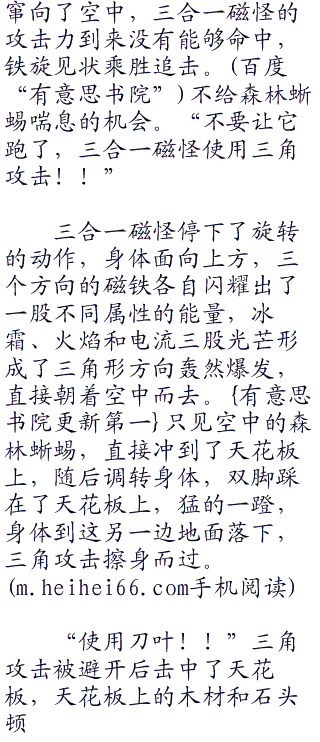 窜向了空中，三合一磁怪的
攻击力到来没有能够命中，
铁旋见状乘胜追击。(百度
“有意思书院”)不给森林蜥
蜴喘息的机会。“不要让它
跑了，三合一磁怪使用三角
攻击！！”
三合一磁怪停下了旋转
的动作，身体面向上方，三
个方向的磁铁各自闪耀出了
一股不同属性的能量，冰
霜、火焰和电流三股光芒形
成了三角形方向轰然爆发，
直接朝着空中而去。{有意思
书院更新第一}只见空中的森
林蜥蜴，直接冲到了天花板
上，随后调转身体，双脚踩
在了天花板上，猛的一蹬，
身体到这另一边地面落下，
三角攻击擦身而过。
(m.heihei66.com手机阅读)
“使用刀叶！！”三角
攻击被避开后击中了天花
板，天花板上的木材和石头
顿